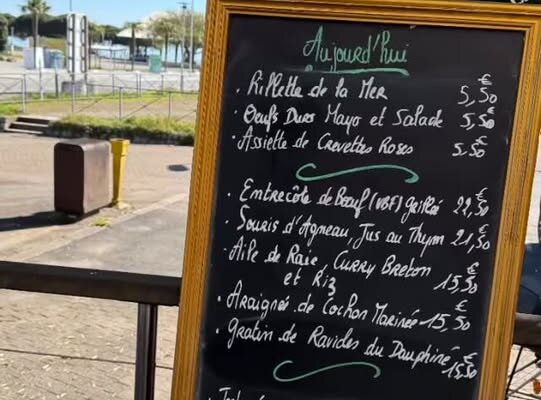 Aujourd'hui
. Rillette de la Mer 5,50 €
. Oeufs Durs Mayo et Salade 5,50 €
. Assiette de Crevettes Roses 5,50 €
. Entrecôte de Bœuf (VBF) Grillée 22,50 €
. Souris d'Agneau, Jus au Thym 21,50 €
. Aile de Raie, Curry Breton
et Riz 15,50 €
. Araignée de Cochon Marinée 15,50 €
. Gratin de Ravioles du Dauphiné 15,50 €